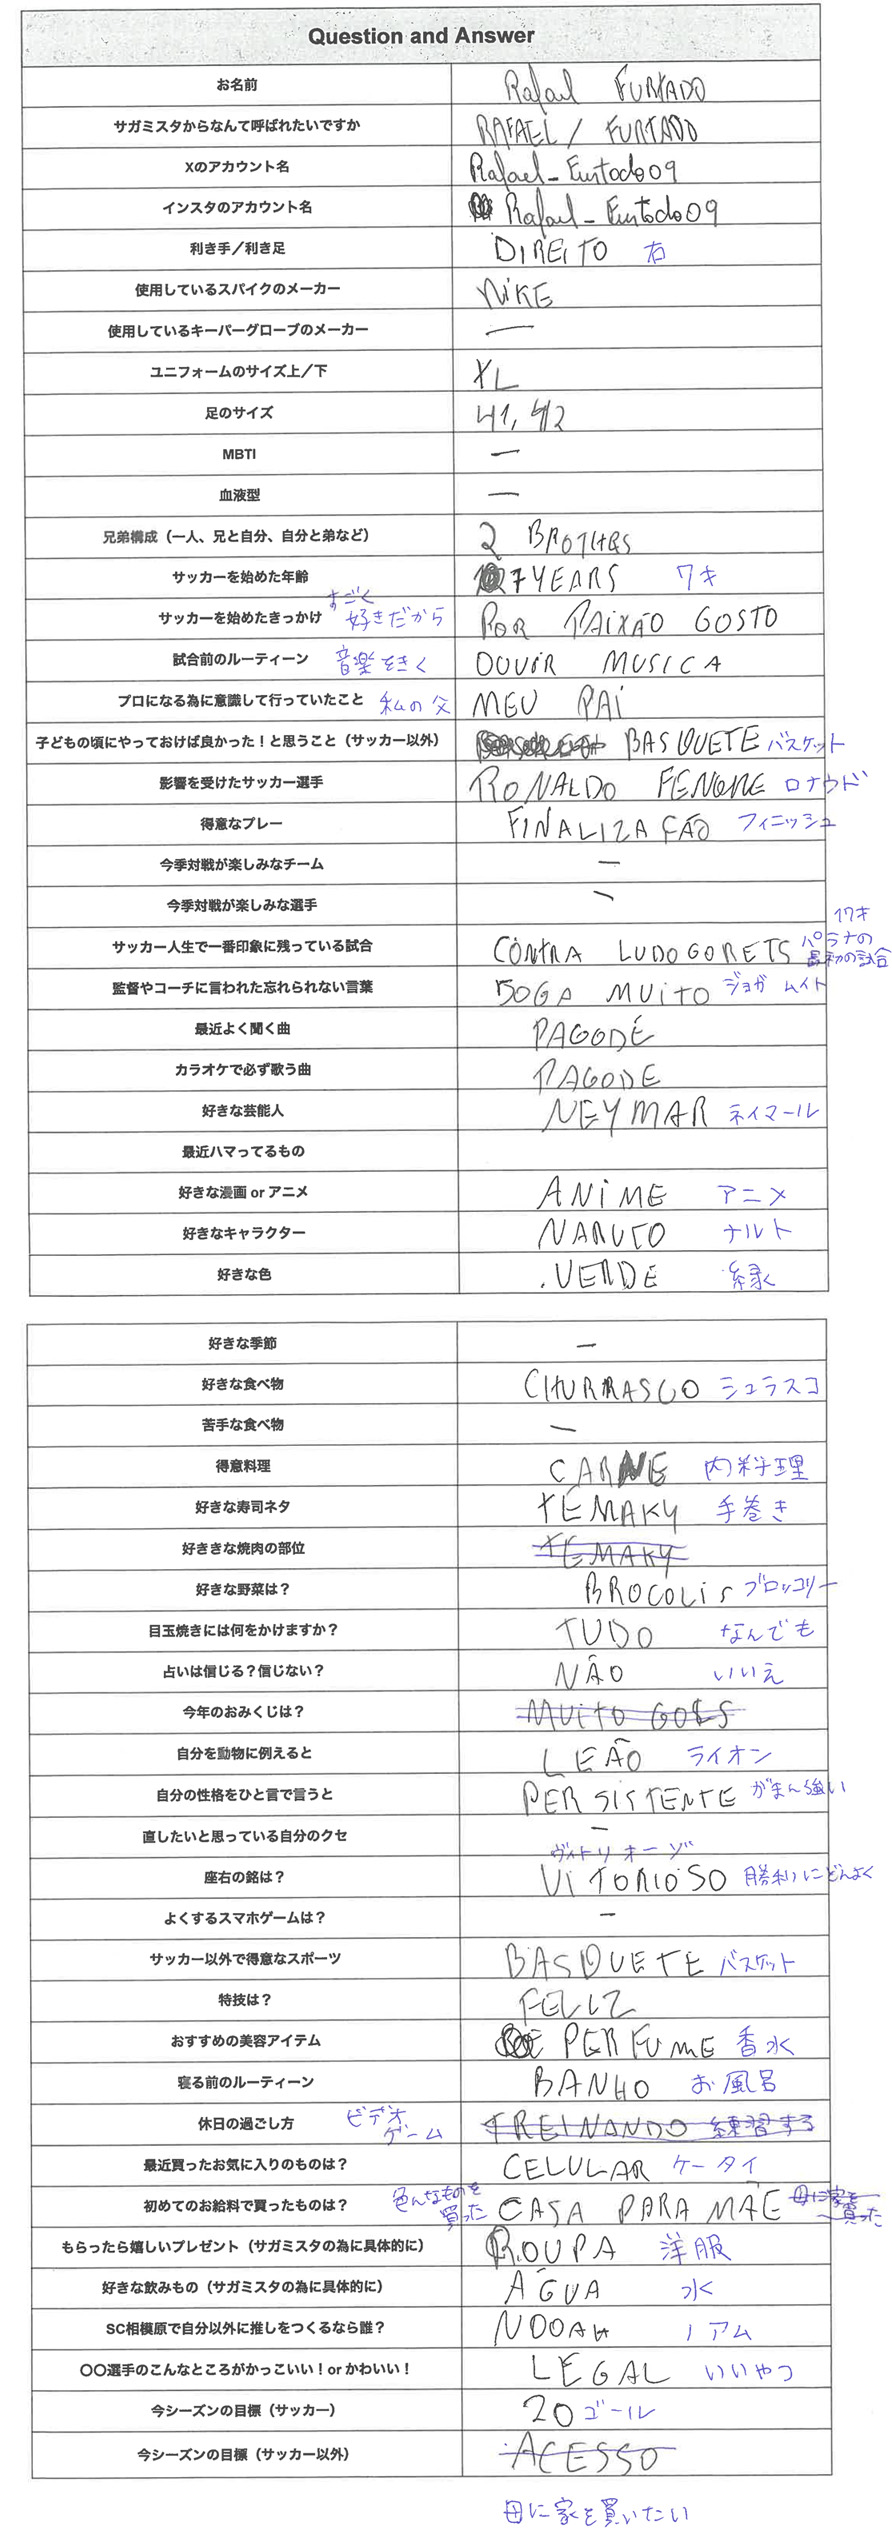 Question and Answer
お名前 Rafael FURTADO
サガミスタからなんて呼ばれたいですか RAFAEL / FURTADO
Xのアカウント名 Rafael_Furtado09
インスタのアカウント名 Rafael_Furtado09
利き手／利き足 DIREITO 右
使用しているスパイクのメーカー NIKE
使用しているキーパーグローブのメーカー —
ユニフォームのサイズ上／下 XL
足のサイズ 41, 42
MBTI —
血液型 —
兄弟構成（一人、兄と自分、自分と弟など） 2 BROTHES
サッカーを始めた年齢 7 YEARS 7才
サッカーを始めたきっかけ すごく好きだから POR PAIXÃO GOSTO
試合前のルーティーン 音楽をきく OUVIR MUSICA
プロになる為に意識して行っていたこと 私の父 MEU PAI
子どもの頃にやっておけば良かった！と思うこと（サッカー以外） BASQUETE バスケット
影響を受けたサッカー選手 RONALDO ロナウド
得意なプレー FINALIZAÇÃO フィニッシュ
今季対戦が楽しみなチーム —
今季対戦が楽しみな選手 —
サッカー人生で一番印象に残っている試合 CONTRA LUDOGORETS 17才 パラナの最初の試合
監督やコーチに言われた忘れられない言葉 JOGA MUITO ジョガ ムイト
最近よく聞く曲 PAGODE
カラオケで必ず歌う曲 PAGODE
好きな芸能人 NEYMAR ネイマール
最近ハマってるもの
好きな漫画 or アニメ ANIME アニメ
好きなキャラクター NARUTO ナルト
好きな色 .VERDE 緑
好きな季節 —
好きな食べ物 CHURRASCO シュラスコ
苦手な食べ物 —
得意料理 CARNE 肉料理
好きな寿司ネタ TEMAKY 手巻き
好ききな焼肉の部位 TEMAKY
好きな野菜は？ BROCOLIS ブロッコリー
目玉焼きには何をかけますか？ TUDO なんでも
占いは信じる？信じない？ NÃO いいえ
今年のおみくじは？ MUITO GOLS
自分を動物に例えると LEÃO ライオン
自分の性格をひと言で言うと PERSISTENTE がまん強い
直したいと思っている自分のクセ —
座右の銘は？ ヴィトリオーゾ VITORIOSO 勝利にどんよく
よくするスマホゲームは？ —
サッカー以外で得意なスポーツ BASQUETE バスケット
特技は？ FELIZ
おすすめの美容アイテム PERFUME 香水
寝る前のルーティーン BANHO お風呂
休日の過ごし方 ビデオゲーム TREINANDO 練習する
最近買ったお気に入りのものは？ CELULAR ケータイ
初めてのお給料で買ったものは？ 色んなものを買った CASA PARA MÃE 母に家を買った
もらったら嬉しいプレゼント（サガミスタの為に具体的に） ROUPA 洋服
好きな飲みもの（サガミスタの為に具体的に） AGUA 水
SC相模原で自分以外に推しをつくるなら誰？ NOOAH ノアム
〇〇選手のこんなところがかっこいい！or かわいい！ LEGAL いいやつ
今シーズンの目標（サッカー） 20 ゴール
今シーズンの目標（サッカー以外） ACESSO
母に家を買いたい